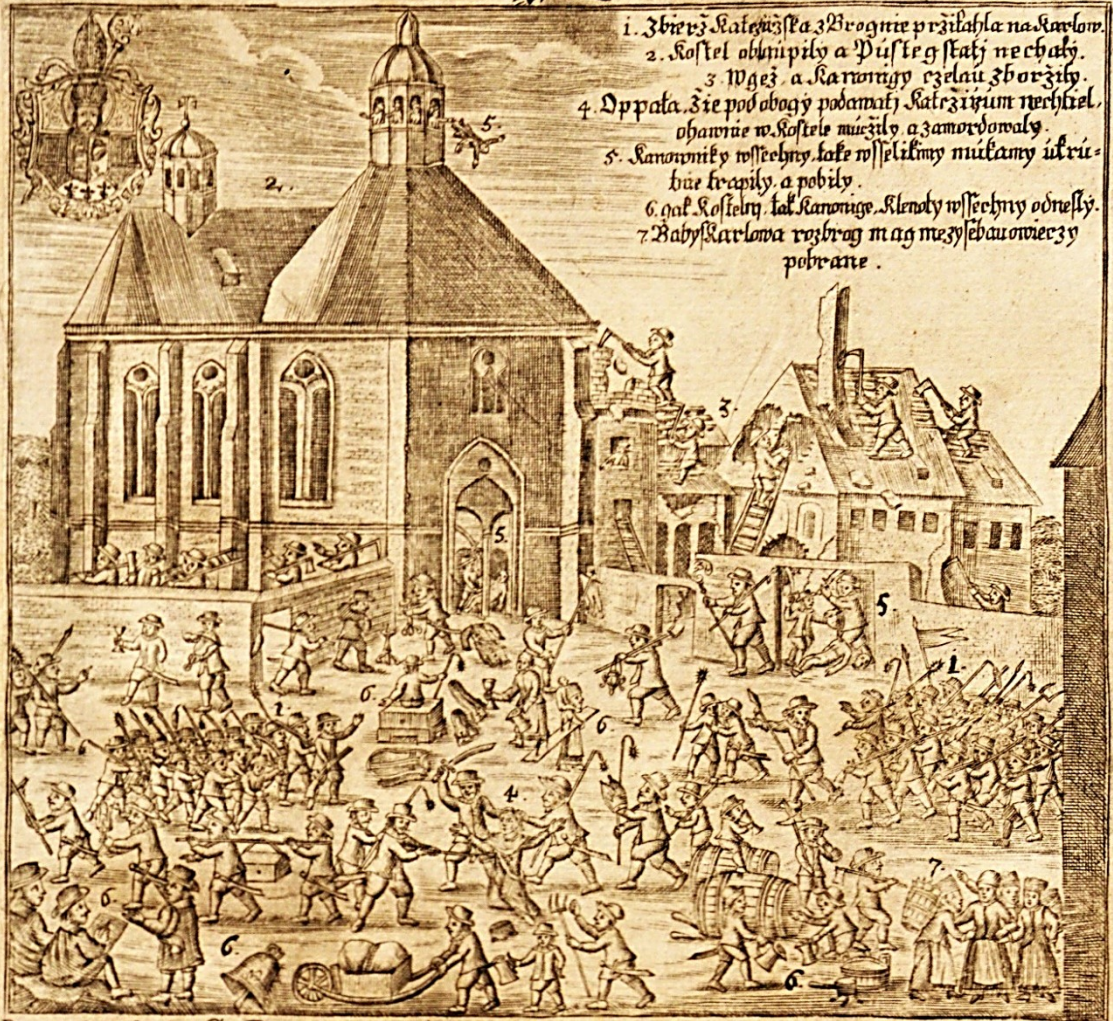 1. Zbierž Katežižska z Brognie pržitahla na Karlow.
2. Kostel obluipily a Pústeg státj nechaly.
3 Wgež. a Kanonigy czelau zboržily.
4. Oppata. Žie pod obogy podawatj Katežizùm nechtiel,
ohawnie w Kostele mùczily. a zamordowaly.
5. Kanowniky wssechny, také wsselikimy múkamy úkru=
tnie trapily. a pobily.
6. gak Kostelnj, tak Kanonige. Klenoty wssechny odnesly.
7. Baby Karlowa rozbrog mag mezy sebau o wieczy
pobrane.
2.
5
3.
5.
5.
1.
1
6
6.
4.
6.
7.
6.
6.